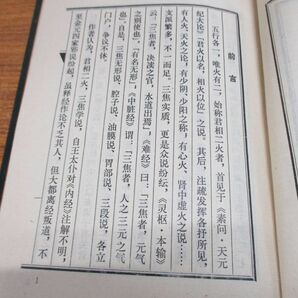 前言
五行各一，唯火有二，始称君相二火者，首见于《素问·天元
纪大论》“君火以名，相火以位”之说。其后，注疏发挥各抒所见，
有人火、天火之论，有少阴、少阳之称，有心火、肾中虚火之说……
支派繁多，不一而足。三焦实质，更是众说纷纭，《灵枢·本输》
云：“三焦者，决渎之官，水道出焉”，《难经》曰：“三焦者，元气
之别使也”，“有名无形”，《中脏经》谓：“三焦者，人之三元之气
也”，自是，三焦无形说、腔子说、油膜说、胃部说、三段说，各立
门户，争议不休。
作者认为，君相二火、三焦学说，自王太仆对《内经》注解不明，
至金元四家邪说纷起，虽释经作论不乏其人，但大都离经叛道，不
1